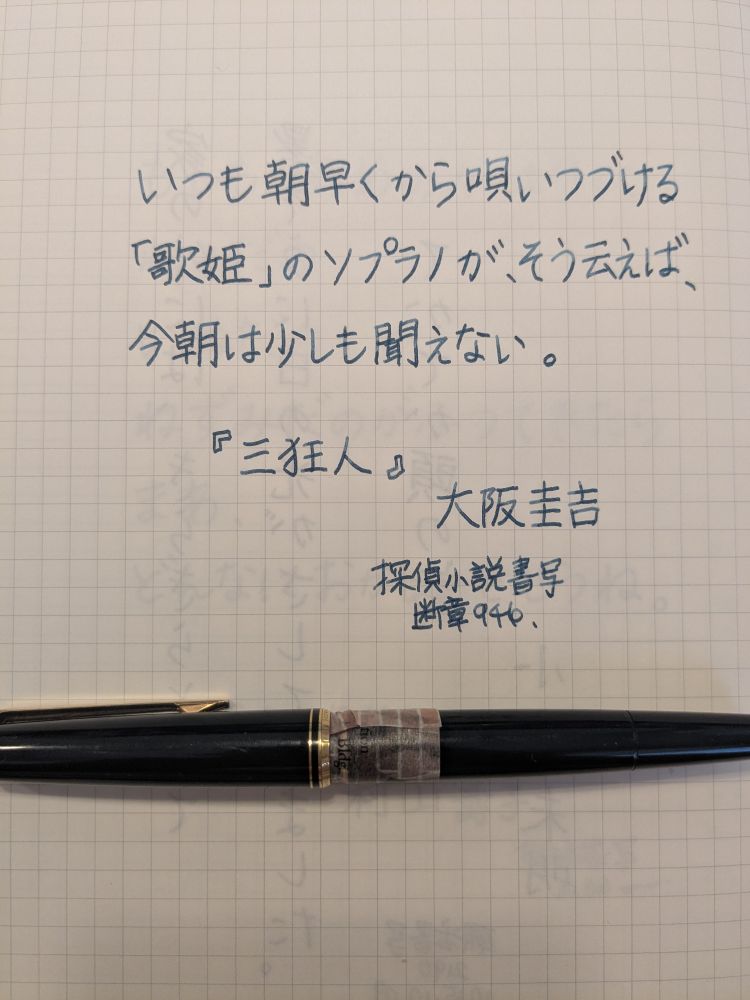 いつも朝早くから唄いつづける
「歌姫」のソプラノが、そう云えば、
今朝は少しも聞えない。
『三狂人』
大阪圭吉
探偵小説書写
断章946.